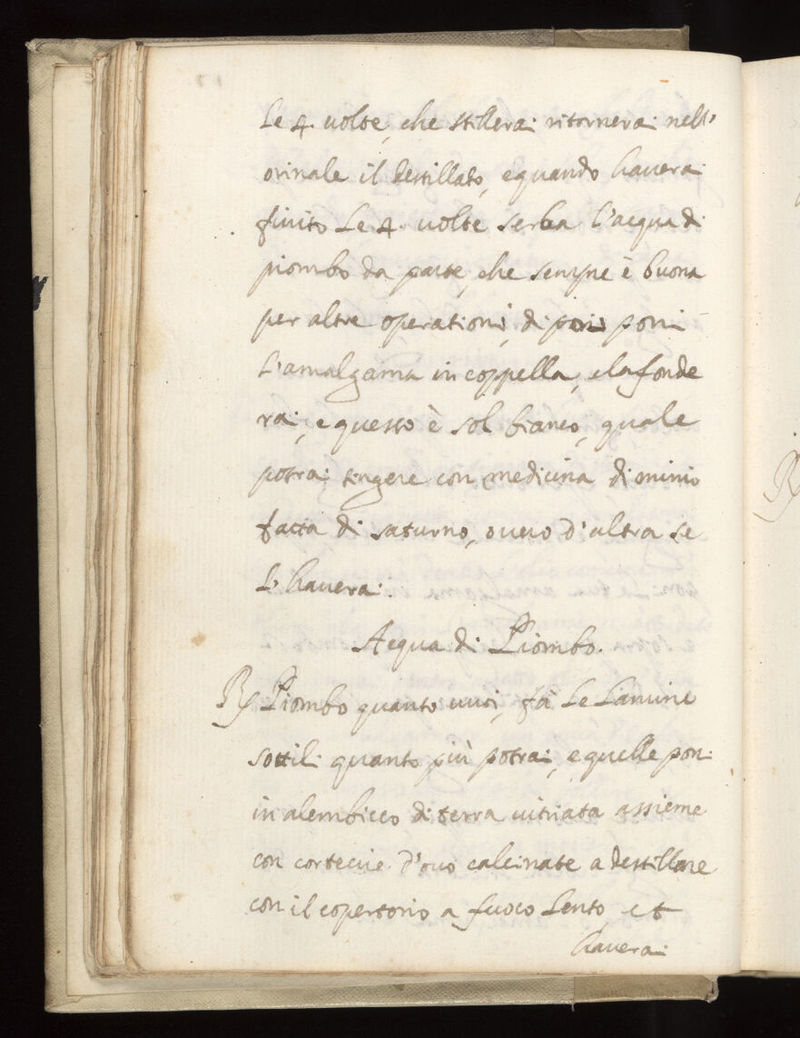 Le 4. volte, che stillerai ritornerai nell'
orinale il destillato, e quando haverai
finito Le 4. volte serba L'acqua di
piombo da parte, che sempre è buona
per altre operationi, di poi poni
L'amalgama in coppella, e la fonde
rai, e questo è sol bianco, quale
potrai tingere con medicina di minio
fatta di saturno, overo d'altra se
L'haverai.
Acqua di Piombo.
℞ Piombo quanto vuoi, fà Le Lamine
sottili quanto più potrai, e quelle poni
in alembicco di terra vitriata assieme
con cortecie d'ovo calcinate a destillare
con il copertorio a fuoco Lento, et
haverai